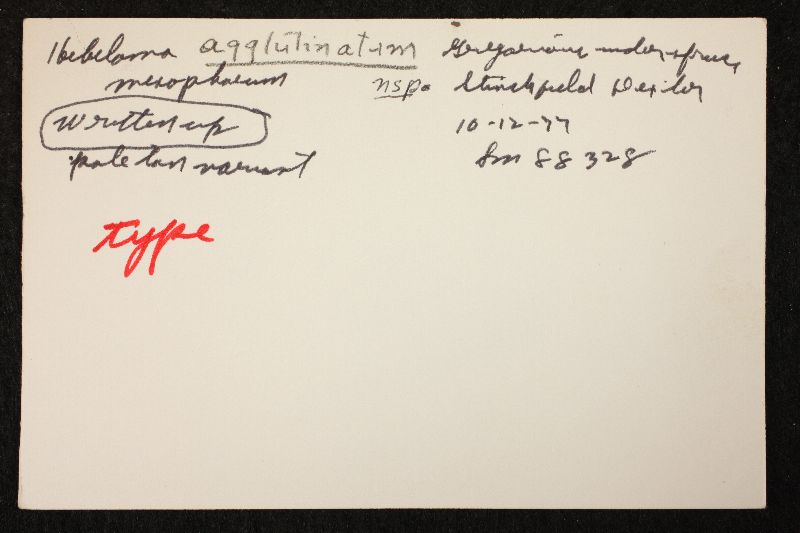 Hebeloma agglutinatum Gregarious under spruce
mesophaeum nsp. Stinchfield Dexter
Written up 10-12-77
pale tan variant Sm 88328
type